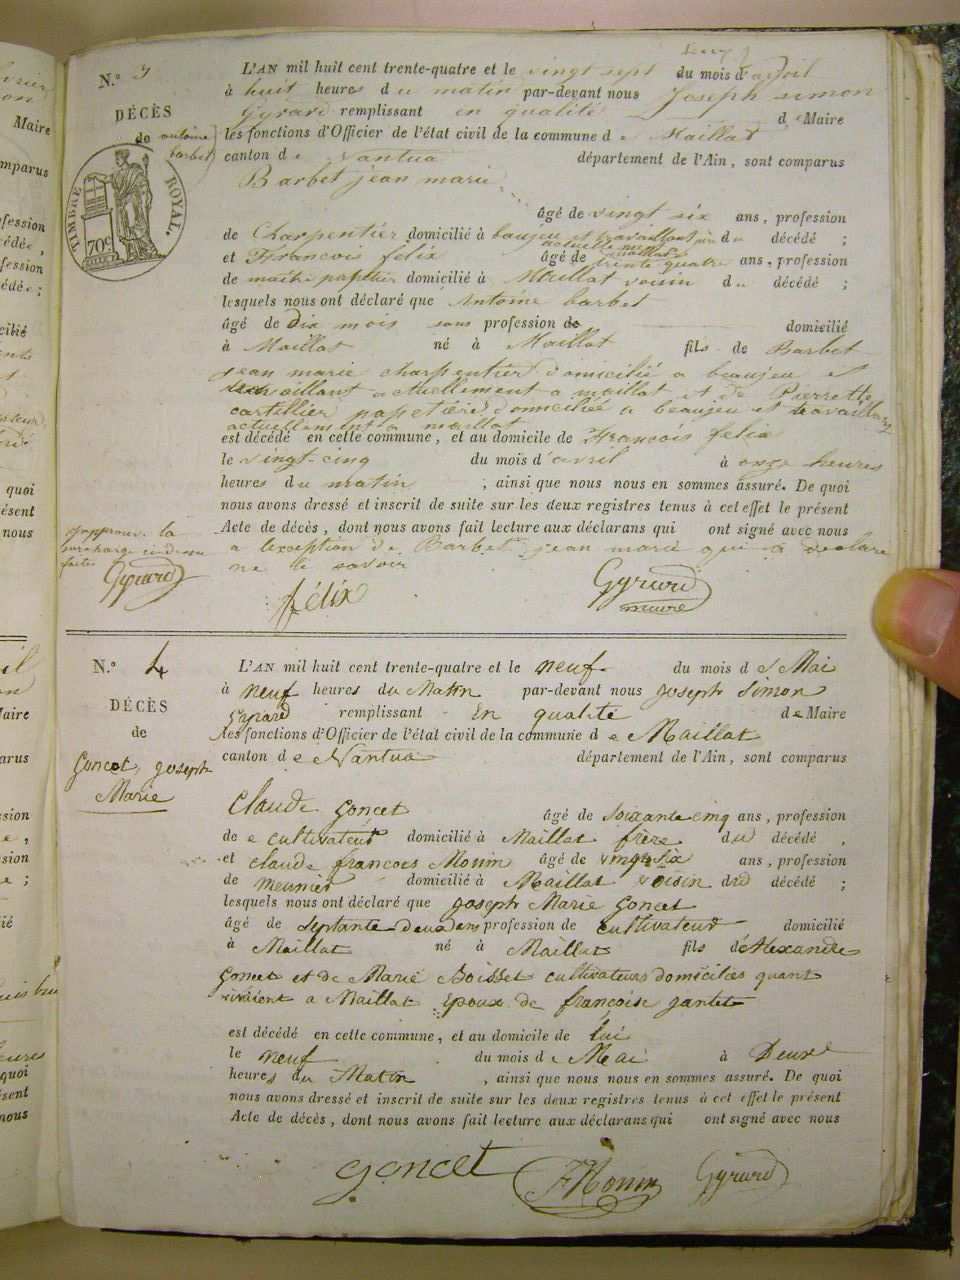 N.º 3
L'AN mil huit cent trente-quatre et le vingt sept du mois d'avril
à huit heures du matin par-devant nous Joseph simon
DÉCÈS
Gyrard remplissant en qualité de Maire
de antoine barbet
les fonctions d'Officier de l'état civil de la commune de Maillat
canton de Nantua département de l'Ain, sont comparus
TIMBRE ROYAL.
70c
Barbet jean marie
âgé de vingt six ans, profession
de Charpentier domicilié à baujeu et travaillant du décédé ;
actuellement a maillat
et François felix âgé de trente quatre ans, profession
de maitre papetier domicilié à Maillat voisin du décédé ;
lesquels nous ont déclaré que Antoine barbet
âgé de dix mois sans profession de domicilié
à Maillat né à Maillat fils de Barbet
jean marie charpentier domicilié a beaujeu et
travaillant actuellement a maillat et de Pierrette
cartellier papetière domiciliée a beaujeu et travaillant
actuellement a maillat
est décédé en cette commune, et au domicile de François felix
le vingt-cinq du mois d'avril à onze heures
heures du matin ; ainsi que nous nous en sommes assuré. De quoi
nous avons dressé et inscrit de suite sur les deux registres tenus à cet effet le présent
Acte de décès, dont nous avons fait lecture aux déclarans qui ont signé avec nous
a lexception de Barbet jean marie qui a declare
ne le savoir
japprouve la
surcharge
faites
Gyrard
félix
Gyrard
maire
N.º 4
L'AN mil huit cent trente-quatre et le neuf du mois de Mai
à neuf heures du Matin par-devant nous joseph Simon
DÉCÈS
Gyrard remplissant En qualité de Maire
de
les fonctions d'Officier de l'état civil de la commune de Maillat
goncet, joseph
Marie
canton de Nantua département de l'Ain, sont comparus
claude goncet âgé de soixante cinq ans, profession
de cultivateur domicilié à Maillat frère du décédé ,
et claude francois Monin âgé de vingt six ans, profession
de meunier domicilié à Maillat voisin du décédé ;
lesquels nous ont déclaré que joseph Marie goncet
âgé de septante deux ans profession de cultivateur domicilié
à Maillat né à Maillat fils d'Alexandre
goncet et de Marie Boisset cultivateurs domiciliés quant
vivaient a Maillat Epoux de françoise gantet
est décédé en cette commune, et au domicile de lui
le neuf du mois de Mai à Deux
heures du Matin , ainsi que nous nous en sommes assuré. De quoi
nous avons dressé et inscrit de suite sur les deux registres tenus à cet effet le présent
Acte de décès, dont nous avons fait lecture aux déclarans qui ont signé avec nous
goncet FMonin Gyrard